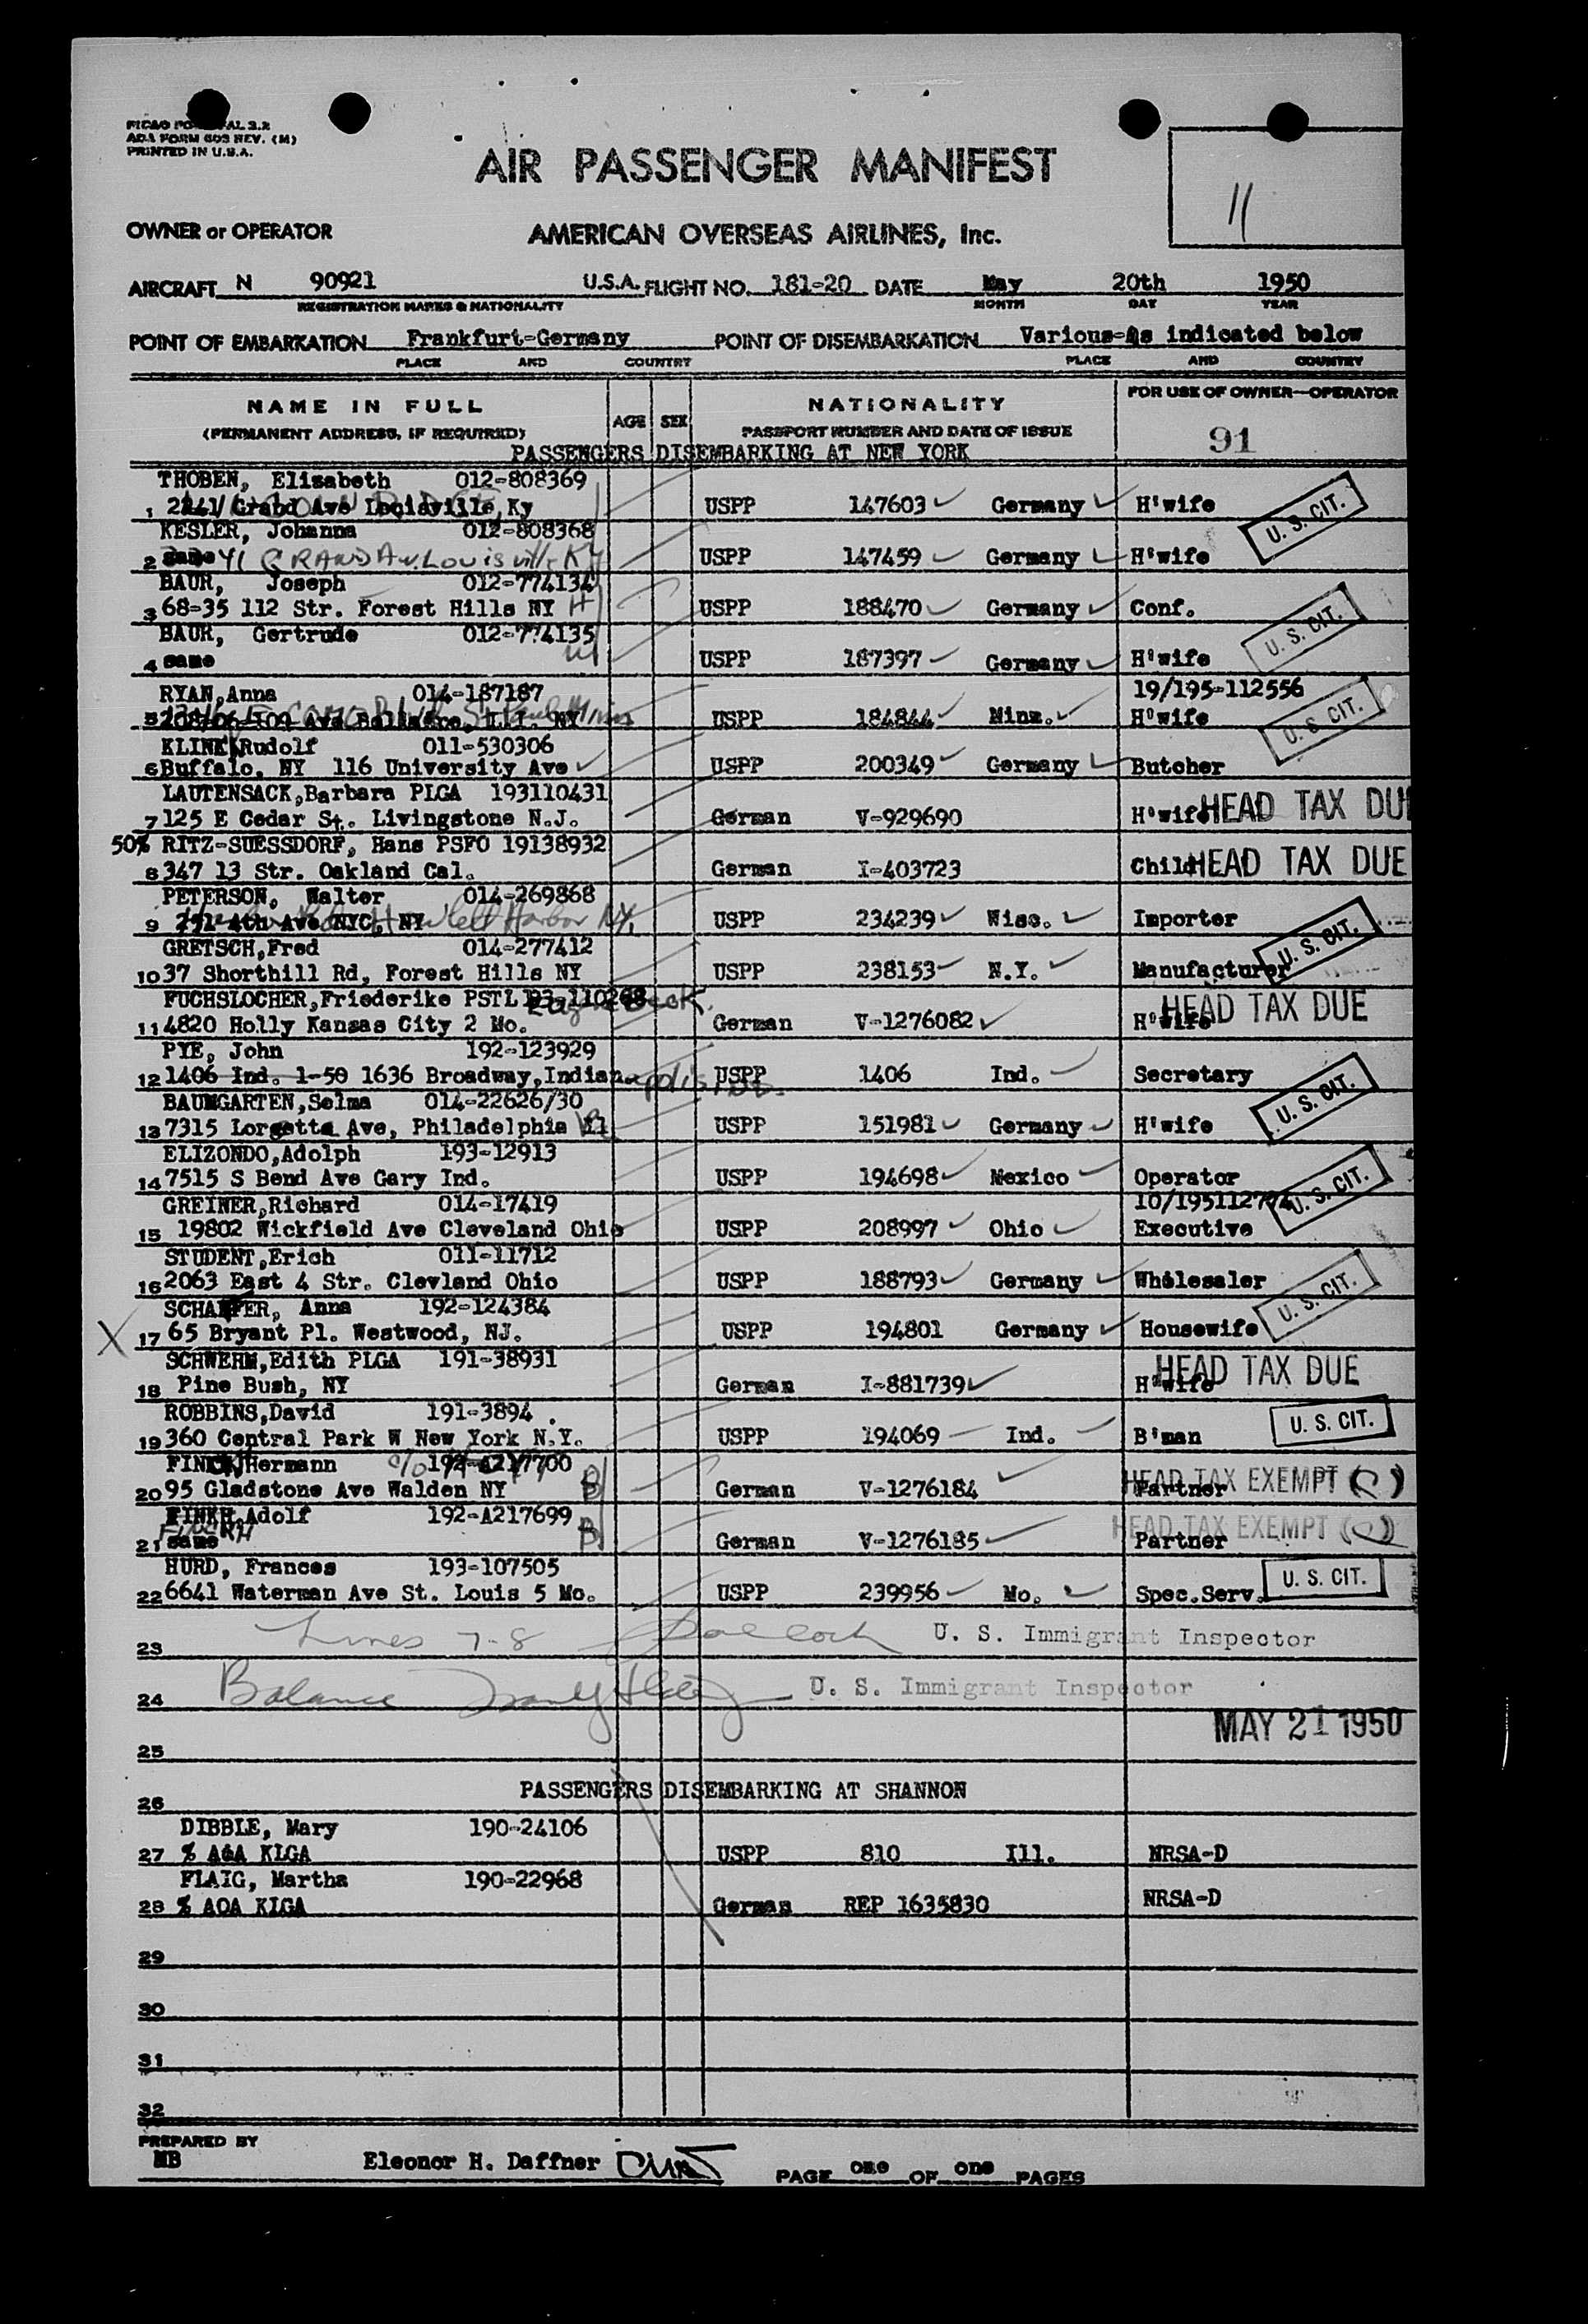 ADA FORM 603 REV. (M)
PRINTED IN U.S.A.
AIR PASSENGER MANIFEST
11
OWNER or OPERATOR AMERICAN OVERSEAS AIRLINES, Inc.
AIRCRAFT N 90921 U.S.A. FLIGHT NO. 181-20 DATE May 20th 1950
REGISTRATION MARKS & NATIONALITY MONTH DAY YEAR
POINT OF EMBARKATION Frankfurt-Germany POINT OF DISEMBARKATION Various-As indicated below
PLACE AND COUNTRY PLACE AND COUNTRY
NAME IN FULL AGE SEX NATIONALITY FOR USE OF OWNER—OPERATOR
(PERMANENT ADDRESS, IF REQUIRED) PASSPORT NUMBER AND DATE OF ISSUE 91
PASSENGERS DISEMBARKING AT NEW YORK
THOBEN, Elisabeth 012-808369
1 2241 Grand Ave Louisville, Ky USPP 147603 Germany H'wife
KESLER, Johanna 012-808368 U. S. CIT.
2 same 41 GRAND Av. Louisville KY USPP 147459 Germany H'wife
BAUR, Joseph 012-774134
3 68-35 112 Str. Forest Hills NY H USPP 188470 Germany Conf.
BAUR, Gertrude 012-774135 U. S. CIT.
4 same W USPP 187397 Germany H'wife
RYAN, Anna 014-187187 19/195-112556
5 USPP 184844 Minn. H'wife U. S. CIT.
KLINK, Rudolf 011-530306
6 Buffalo, NY 116 University Ave USPP 200349 Germany Butcher
LAUTENSACK, Barbara PLGA 193110431
7 125 E Cedar St. Livingstone N.J. German V-929690 H'wife HEAD TAX DUE
50% RITZ-SUESSDORF, Hans PSFO 19138932
8 347 13 Str. Oakland Cal. German I-403723 Child HEAD TAX DUE
PETERSON, Walter 014-269868
9 251 4th Ave NYC, NY Hewlett Harbor NY. USPP 234239 Wisc. Importer
GRETSCH, Fred 014-277412 U. S. CIT.
10 37 Shorthill Rd, Forest Hills NY USPP 238153 N.Y. Manufacturer
FUCHSLOCHER, Friederike PSTL 193-110268
11 4820 Holly Kansas City 2 Mo. German V-1276082 H'wife HEAD TAX DUE
PYE, John 192-123929
12 1406 Ind. 1-50 1636 Broadway, Indianapolis Ind. USPP 1406 Ind. Secretary
BAUMGARTEN, Selma 014-22626/30 U. S. CIT.
13 7315 Lorgetta Ave, Philadelphia USPP 151981 Germany H'wife
ELIZONDO, Adolph 193-12913
14 7515 S Bend Ave Gary Ind. USPP 194698 Mexico Operator
GREINER, Richard 014-17419 U. S. CIT.
15 19802 Wickfield Ave Cleveland Ohio USPP 208997 Ohio Executive
STUDENT, Erich 011-11712
16 2063 East 4 Str. Clevland Ohio USPP 188793 Germany Wholesaler
SCHAFFER, Anna 192-124384 U. S. CIT.
X 17 65 Bryant Pl. Westwood, NJ. USPP 194801 Germany Housewife
SCHWERM, Edith PLGA 191-38931
18 Pine Bush, NY German I-881739 H'wife HEAD TAX DUE
ROBBINS, David 191-3894
19 360 Central Park W New York N.Y. USPP 194069 Ind. B'man U. S. CIT.
FINCK, Hermann
20 95 Gladstone Ave Walden NY B German V-1276184 Partner HEAD TAX EXEMPT
FINKH, Adolf 192-A217699
21 same B German V-1276185 Partner HEAD TAX EXEMPT
HURD, Frances 193-107505
22 6641 Waterman Ave St. Louis 5 Mo. USPP 239956 Mo. Spec.Serv. U. S. CIT.
23 Lines 7-8 U. S. Immigrant Inspector
24 Balance U. S. Immigrant Inspector
MAY 21 1950
25
26 PASSENGERS DISEMBARKING AT SHANNON
DIBBLE, Mary 190-24106
27 % AOA KLGA USPP 810 Ill. NRSA-D
FLAIG, Martha 190-22968
28 % AOA KIGA German REP 1635830 NRSA-D
29
30
31
32
PREPARED BY
MB Eleonor H. Daffner PAGE one OF one PAGES